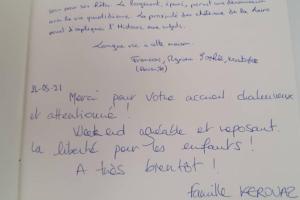 pour ses hôtes. Le logement, épuré, permet une déconnexion
avec la vie quotidienne. La proximité des châteaux de la Loire
permet d'expliquer l'Histoire aux enfants.
Longue vie à cette maison.
François,
22-05-21
Merci pour votre accueil chaleureux
et attentionné !
Weekend agréable et reposant.
la liberté pour les enfants !
A très bientôt !
famille KEROUAZ